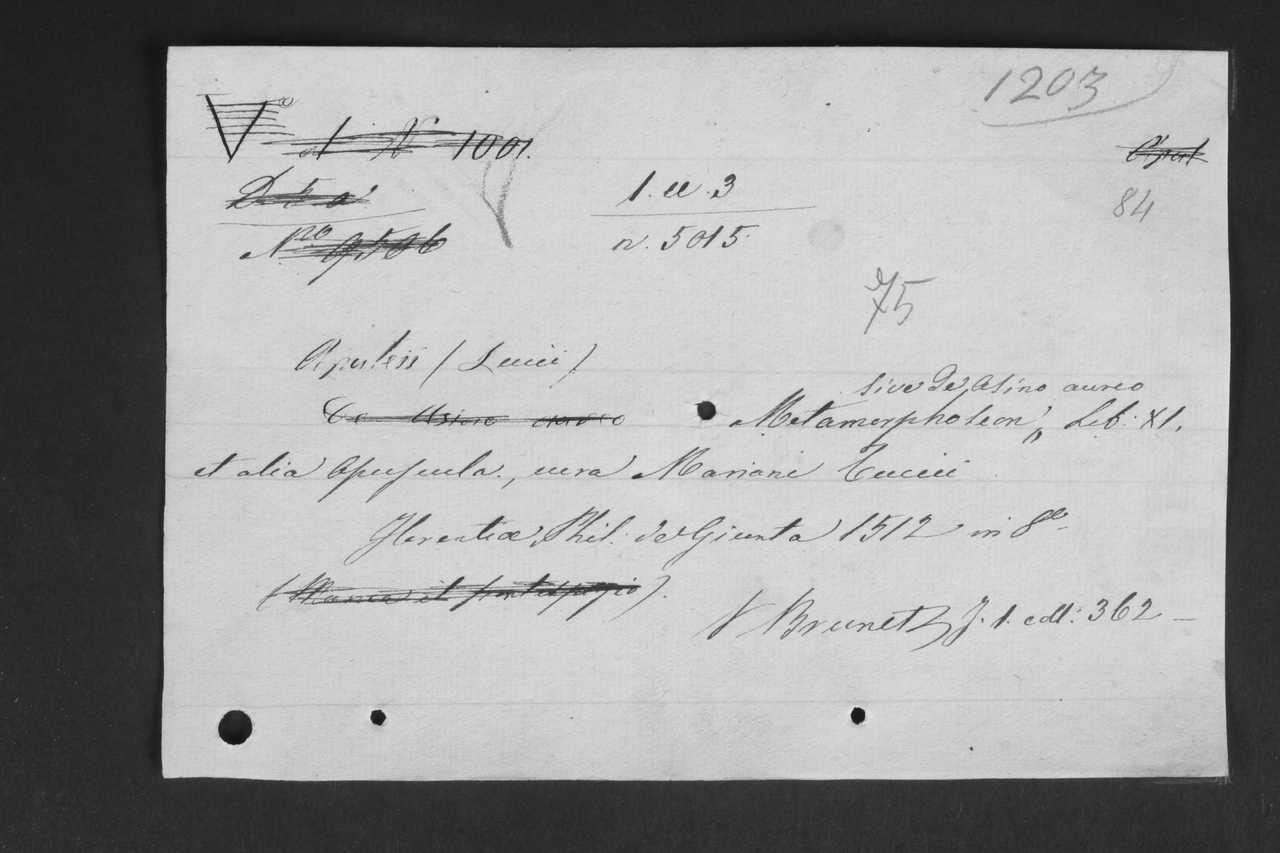 1203
V
1 N 1001.
84
1. ee. 3
Nro 9506
n. 5015
75
Apuleii (Lucii)
sive De Asino aureo
De Asino aureo Metamorphoseon, Lib: XI.
et alia Opuscula., cura Mariani Tuccii
Florentiæ, Phil: de Giunta 1512 in 8o
(Manca il frontespizio).
V Brunet J. 1. coll: 362 —